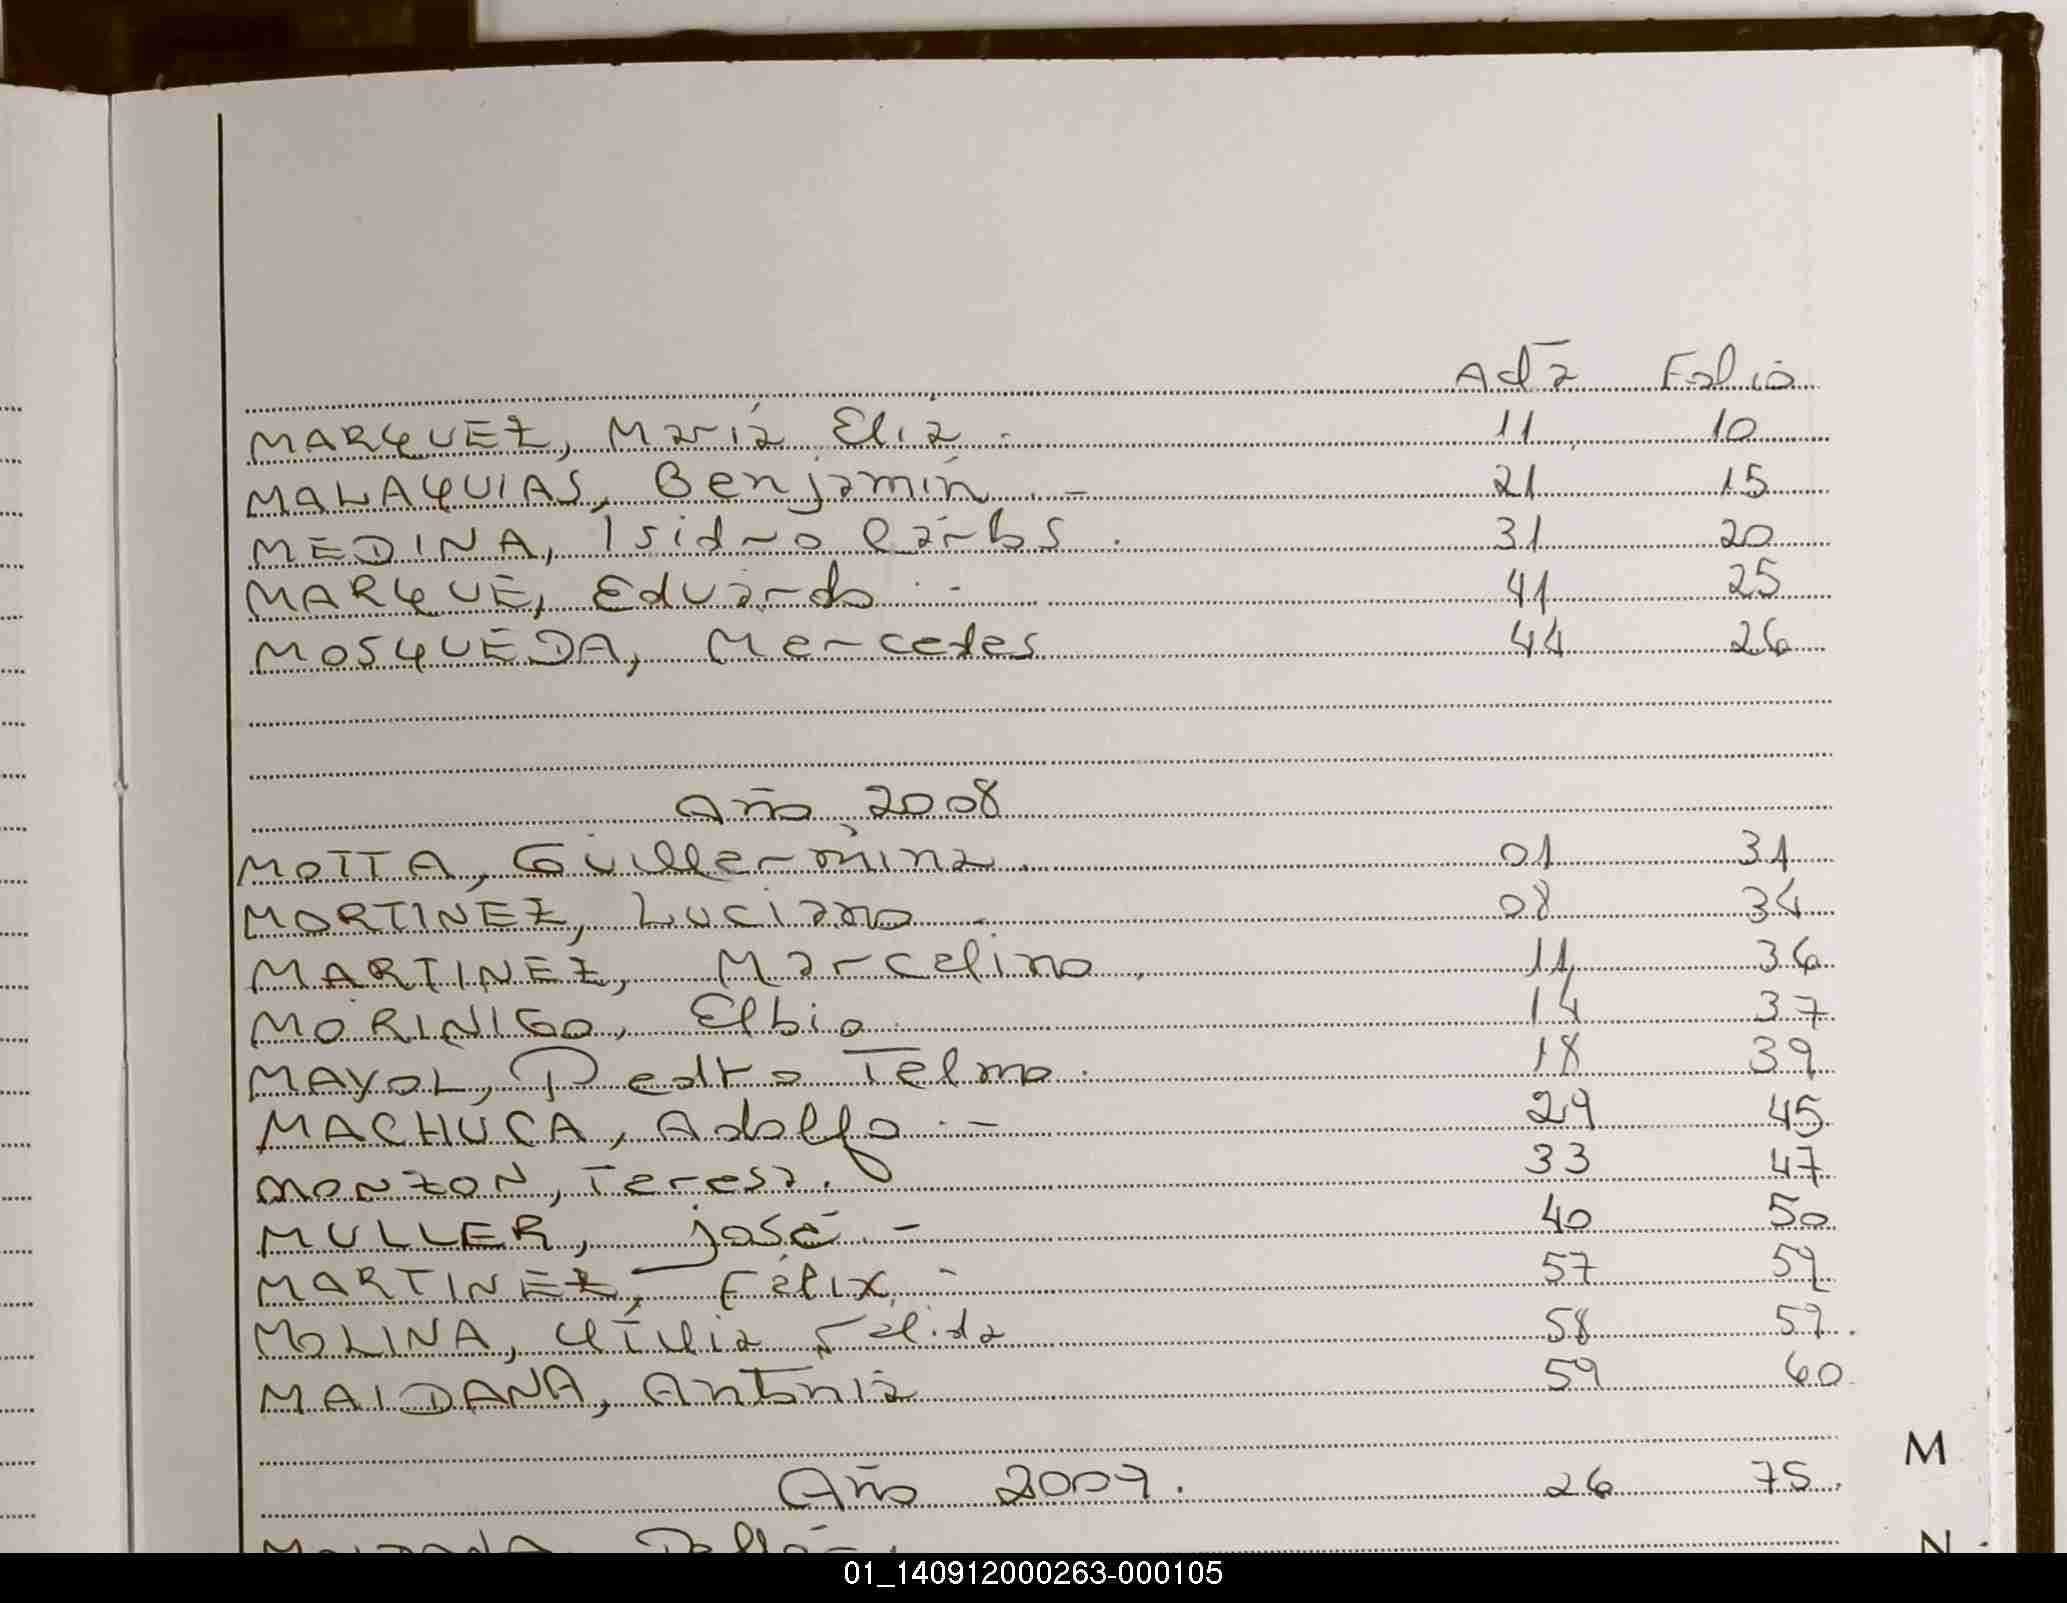 Ada Folio
MARQUEZ, María Elia.- 11 10
MALAQUIAS, Benjamín.- 21 15
MEDINA, Isidro Carlos. 31 20
MARQUE, Eduardo.- 41 25
MOSQUEDA, Mercedes 44 26
Año 2008
MOTTA, Guillermina. 01 31
MORTINEZ, Luciano. 08 34
MARTINEZ, Marcelino. 11 36
MORINIGO, Elbio 14 37
MAYOL, Pedro Telmo. 18 39
MACHUCA, Adolfo.- 29 45
MONZON, Teresa. 33 47
MULLER, José.- 40 50
MARTINEZ, Félix.- 57 59
MOLINA, 58 59.
MAIDANA, Antonia 59 60
M
Año 2009. 26 75.
N
01_140912000263-000105